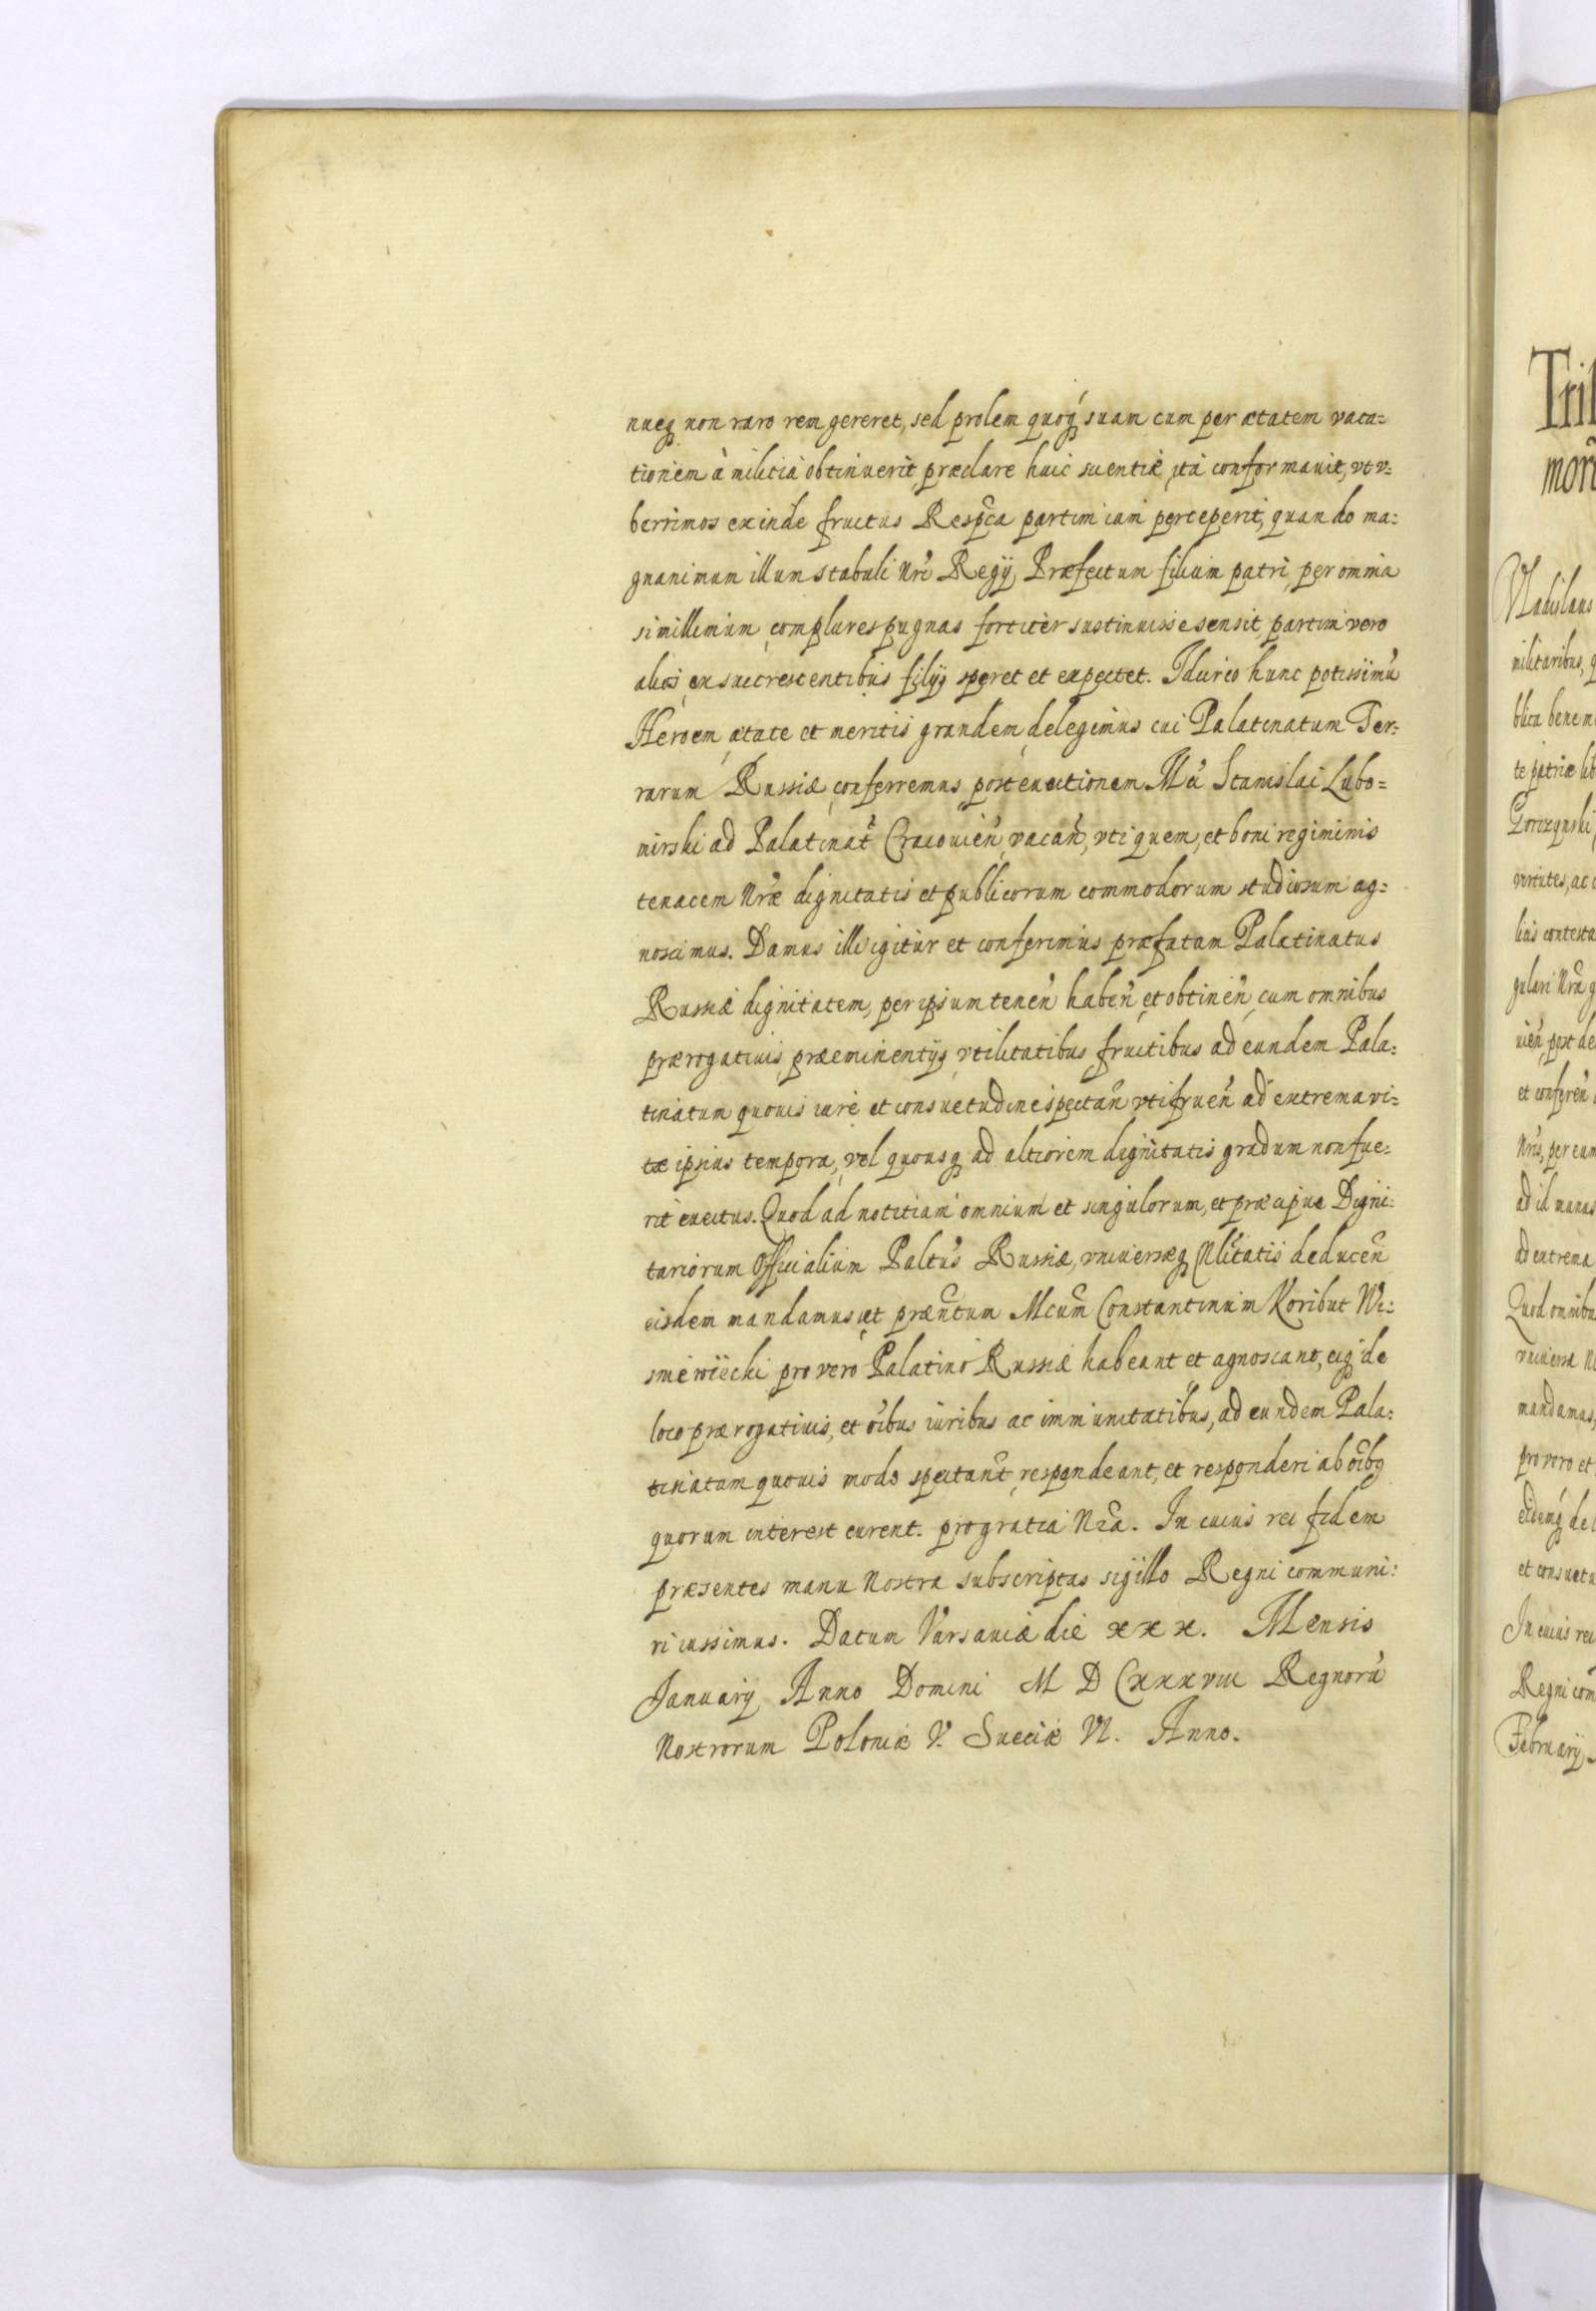 nueq₃ non raro rem gereret, sed prolem quoq₃ suam cum per ætatem vaca=
tionem à militiâ obtinuerit, præclare huic scientiæ ita conformauit, vt v=
berrimos exinde fructus Respca partim iam perceperit, quando ma=
gnanimum illum stabuli Nri Regÿ Præfectum filium patri per omnia
simillimum complures pugnas fortiter sustinuisse sensit, partim vero
alios ex succrescentibus filÿs speret et expectet. Idcirco hunc potissimū
Heroem ætate et meritis grandem delegimus cui Palatinatum Ter=
rarum Russiæ conferremus post euectionem Mci Stanislai Lubo=
mirski ad Palatinat Cracouien, vacañ, vti quem, et boni regiminis
tenacem Nræ dignitatis et publicorum commodorum studiosum ag=
noscimus. Damus illi igitur et conferimus præfatam Palatinatus
Russiæ dignitatem, per ipsum teneñ habeñ, et obtineñ, cum omnibus
prærogatiuis, præeminentÿs, vtilitatibus, fructibus ad eundem Pala=
tinatum quouis iure et consuetudine spectañ vti frueñ ad extrema vi=
tæ ipsius tempora, vel quousq₃ ad altiorem dignitatis gradum non fue=
rit euectus. Quod ad notitiam omnium et singulorum, et præcipue Digni=
tariorum Officialium Paltus Russiæ, vniuersæq₃ Nlitatis deduceñ
eisdem mandamus, vt præntum Mcum Constantinum Koribut Wi=
sniewiecki pro vero Palatino Russiæ habeant et agnoscant, eiq₃ de
loco prærogatiuis, et oibus iuribus ac immunitatibus, ad eundem Pala=
tinatum quouis modo spectant, respondeant, et responderi ab oibq₃
quorum interest curent. pro gratia Nra. In cuius rei fidem
præsentes manu Nostra subscriptas sigillo Regni communi=
ri iussimus. Datum Varsauiæ die xxx. Mensis
Januarÿ Anno Domini M D Cxxxviii Regnorū
Nostrorum Poloniæ V. Sueciæ VI. Anno.
Vladislaus
militaribus,
blica benem
te patriæ lib
Gorczynski
virtutes, ac
lius contesta
gulari Nra
uien, post de
et conferen
Nris, per eum
ad id munus
ad extrema
Quod omnibu
vniuersa
mandamus,
pro vero et
eidemq₃ de
et consuetu
In cuius rei
Regni com
Februarÿ